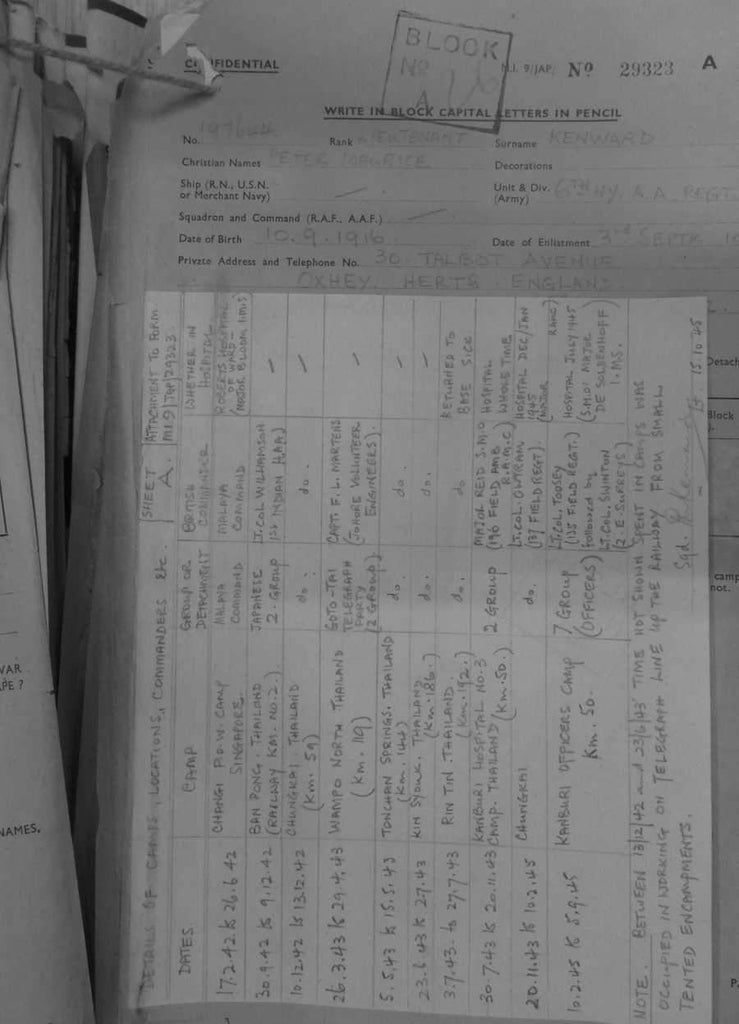 CONFIDENTIAL
BLOCK
No
A
M.I. 9/JAP/ No 29323 A
WRITE IN BLOCK CAPITAL LETTERS IN PENCIL
No. Rank LIEUTENANT Surname KENWARD
Christian Names PETER MAURICE Decorations
Ship (R.N., U.S.N. or Merchant Navy) —
Unit & Div. (Army) 6TH HY. A.A. REGT
Squadron and Command (R.A.F., A.A.F.) —
Date of Birth 10.9.1916 Date of Enlistment 3rd SEPTR
Private Address and Telephone No. 30 TALBOT AVENUE
OXHEY, HERTS. ENGLAND
DETAILS OF CAMPS, LOCATIONS, COMMANDERS Etc. SHEET A. ATTACHMENT TO FORM MI9/JAP/29323
DATES CAMP GROUP OR DETACHMENT BRITISH COMMANDER WHETHER IN HOSPITAL
17.2.42 to 26.6.42 CHANGI P.O.W. CAMP SINGAPORE. MALAYA COMMAND MALAYA COMMAND ROBERTS HOSPITAL WARD - (MAJOR BLOOM IMS)
30.9.42 to 9.12.42 BAN PONG, THAILAND (RAILWAY KM. NO. 2.) JAPANESE 2. GROUP LT. COL WILLIAMSON 1st INDIAN HAA) —
10.12.42 to 13.12.42 CHUNGKAI. THAILAND (Km. 59) do. do. —
26.3.43 to 29.4.43 WAMPO NORTH THAILAND (Km. 119) GOTO-TAI TELEGRAPH PARTY (2 GROUP) CAPT. F. L. MARTENS (JOHORE VOLUNTEER ENGINEERS). —
5.5.43 to 15.5.43 TONCHAN SPRINGS. THAILAND (Km. 144) do. do. —
23.6.43 to 2.7.43 KIN SYOWK. THAILAND (Km. 186.) do. do. —
3.7.43 to 29.7.43 RIN TIN. THAILAND. (Km. 192.) do. do RETURNED TO BASE SICK
30.7.43 to 20.11.43 KANBURI HOSPITAL NO. 3 CAMP. THAILAND (Km. 50.) 2 GROUP MAJOR REID S.M.O (196 FIELD AMB. R.A.M.C) HOSPITAL WHOLE TIME
20.11.43 to 10.2.45 CHUNGKAI do. LT. COL. OWTRAM (137 FIELD REGT). HOSPITAL DEC/JAN 1945 (MAJOR RAMC)
10.2.45 to 5.9.45 KANBURI OFFICERS CAMP Km. 50. 7 GROUP (OFFICERS) LT. COL. TOOSEY (135 FIELD REGT.) followed by LT. COL. SWINTON (2 E. SURREYS) HOSPITAL JULY 1945 (S.M.O! MAJOR DE SOLDENHOFF) I.M.S.
NOTE. BETWEEN 13/12/42 and 23/6/43 TIME NOT SHOWN SPENT IN CAMPS WAS
OCCUPIED IN WORKING ON TELEGRAPH LINE UP THE RAILWAY FROM SMALL
TENTED ENCAMPMENTS. Sgd. Kenward Lt 15.10.45
Detach
Block
camp
not.
WAR
APE ?
NAMES.
P.